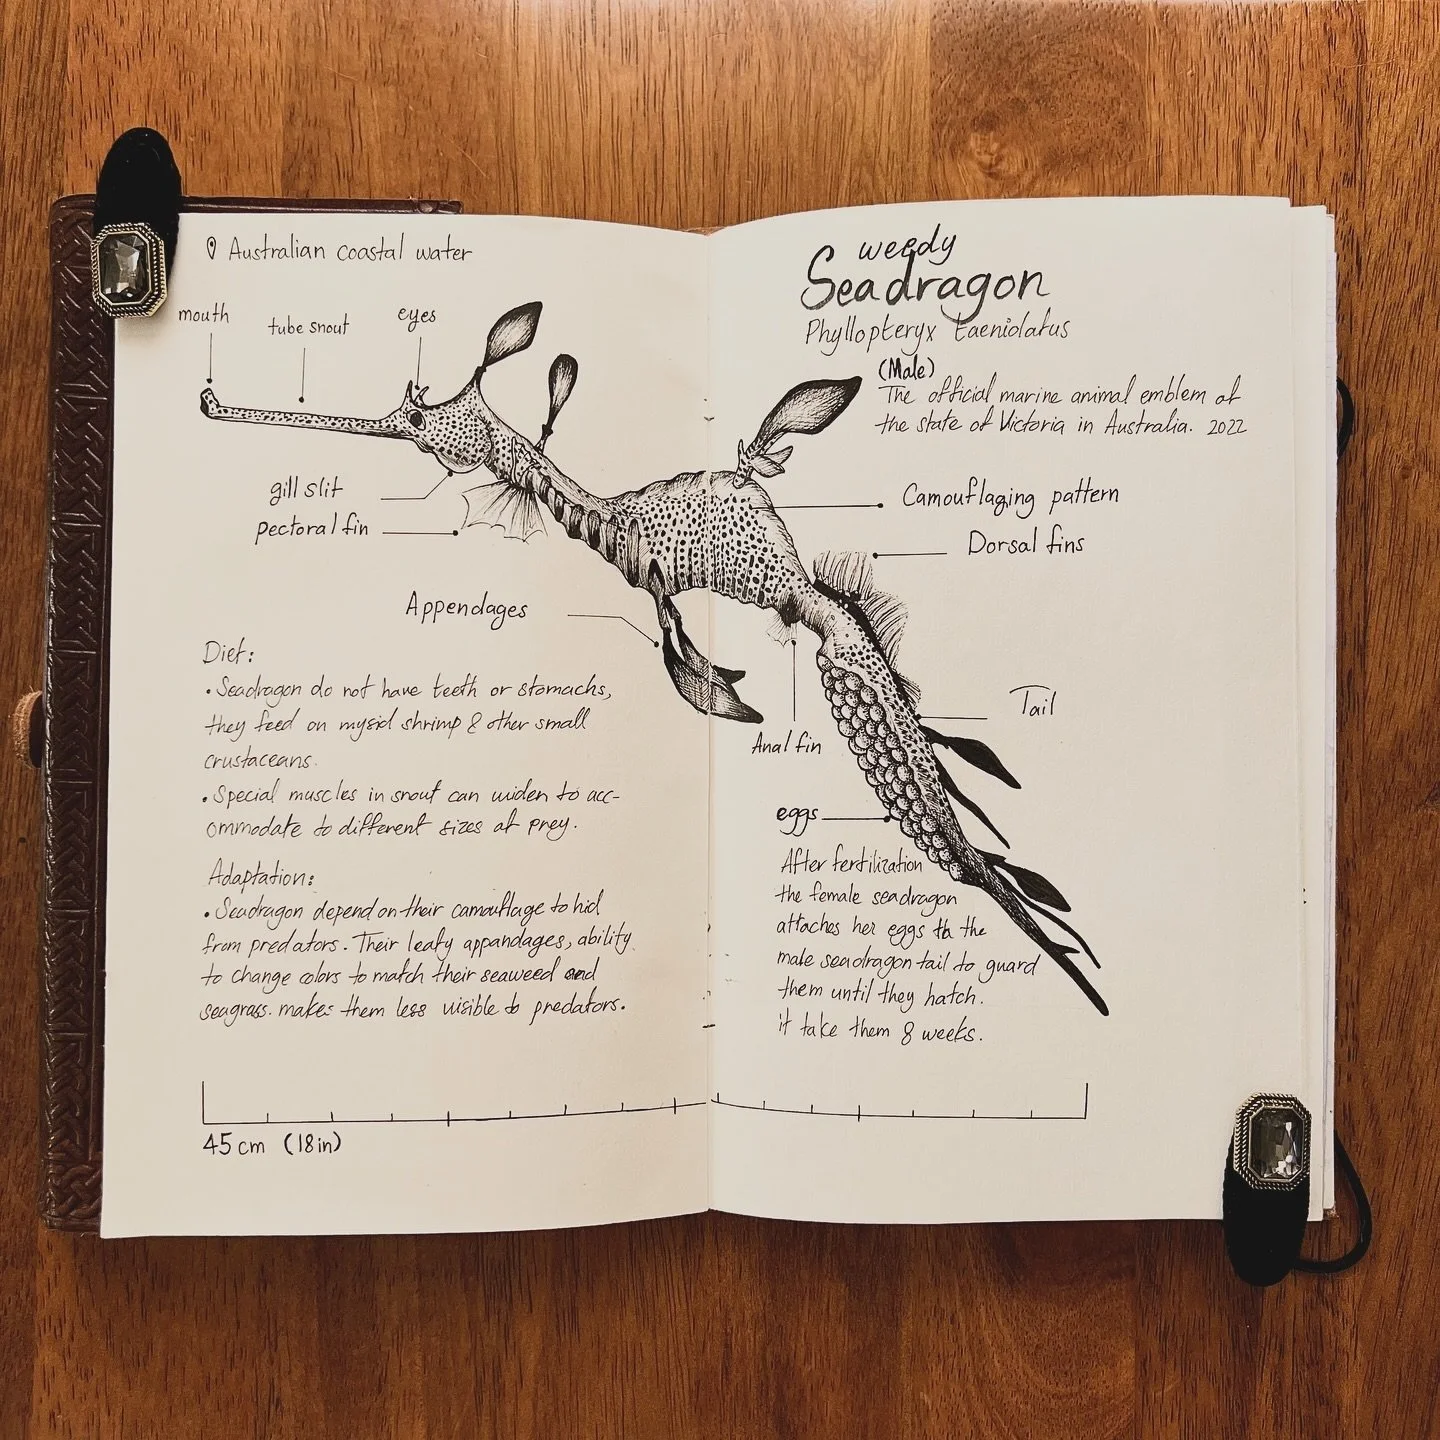 Australian coastal water
mouth
tube snout
eyes
gill slit
pectoral fin
Appendages
Diet:
• Seadragon do not have teeth or stomachs,
they feed on mysid shrimp & other small
crustaceans.
• Special muscles in snout can widen to acc-
ommodate to different sizes of prey.
Adaptation:
• Seadragon depend on their camouflage to hid
from predators. Their leafy appandages, ability
to change colors to match their seaweed and
seagrass. makes them less visible to predators.
45 cm (18in)
weedy
Seadragon
Phyllopteryx taeniolatus
(Male)
The official marine animal emblem of
the state of Victoria in Australia. 2022
Camouflaging pattern
Dorsal fins
Tail
Anal fin
eggs
After fertilization
the female seadragon
attaches her eggs to the
male seadragon tail to guard
them until they hatch.
it take them 8 weeks.